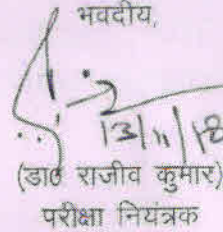 भवदीय,
13/11/18
(डा0 राजीव कुमार)
परीक्षा नियंत्रक